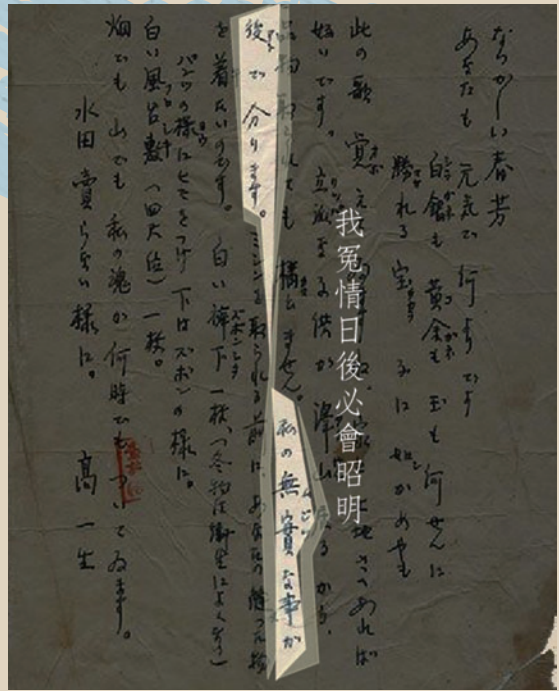 なつかしい春芳
あなたも 元気で 何よりです
白銀も 黄金も 玉も 何せんに
勝れる 宝 子に 如かめやも
此の歌 覚えて 家と土地さへあれば
好いです。立派な子供が 澤山 居るから、
品物 取られても 構ひません。私の無實な事が
後で 分ります。ミシンを取られる前に、あなたの縫った物
を着たいのです。白い袴下一枚、(冬物は衛生によくない)
パンツの様にヒモをつけ 下はズボンの様に。
白い風呂敷(四尺位)一枚。
畑でも 山でも 私の魂が 何時でも ついてゐます。
水田 賣らない 様に。 高一生
我冤情日後必會昭明